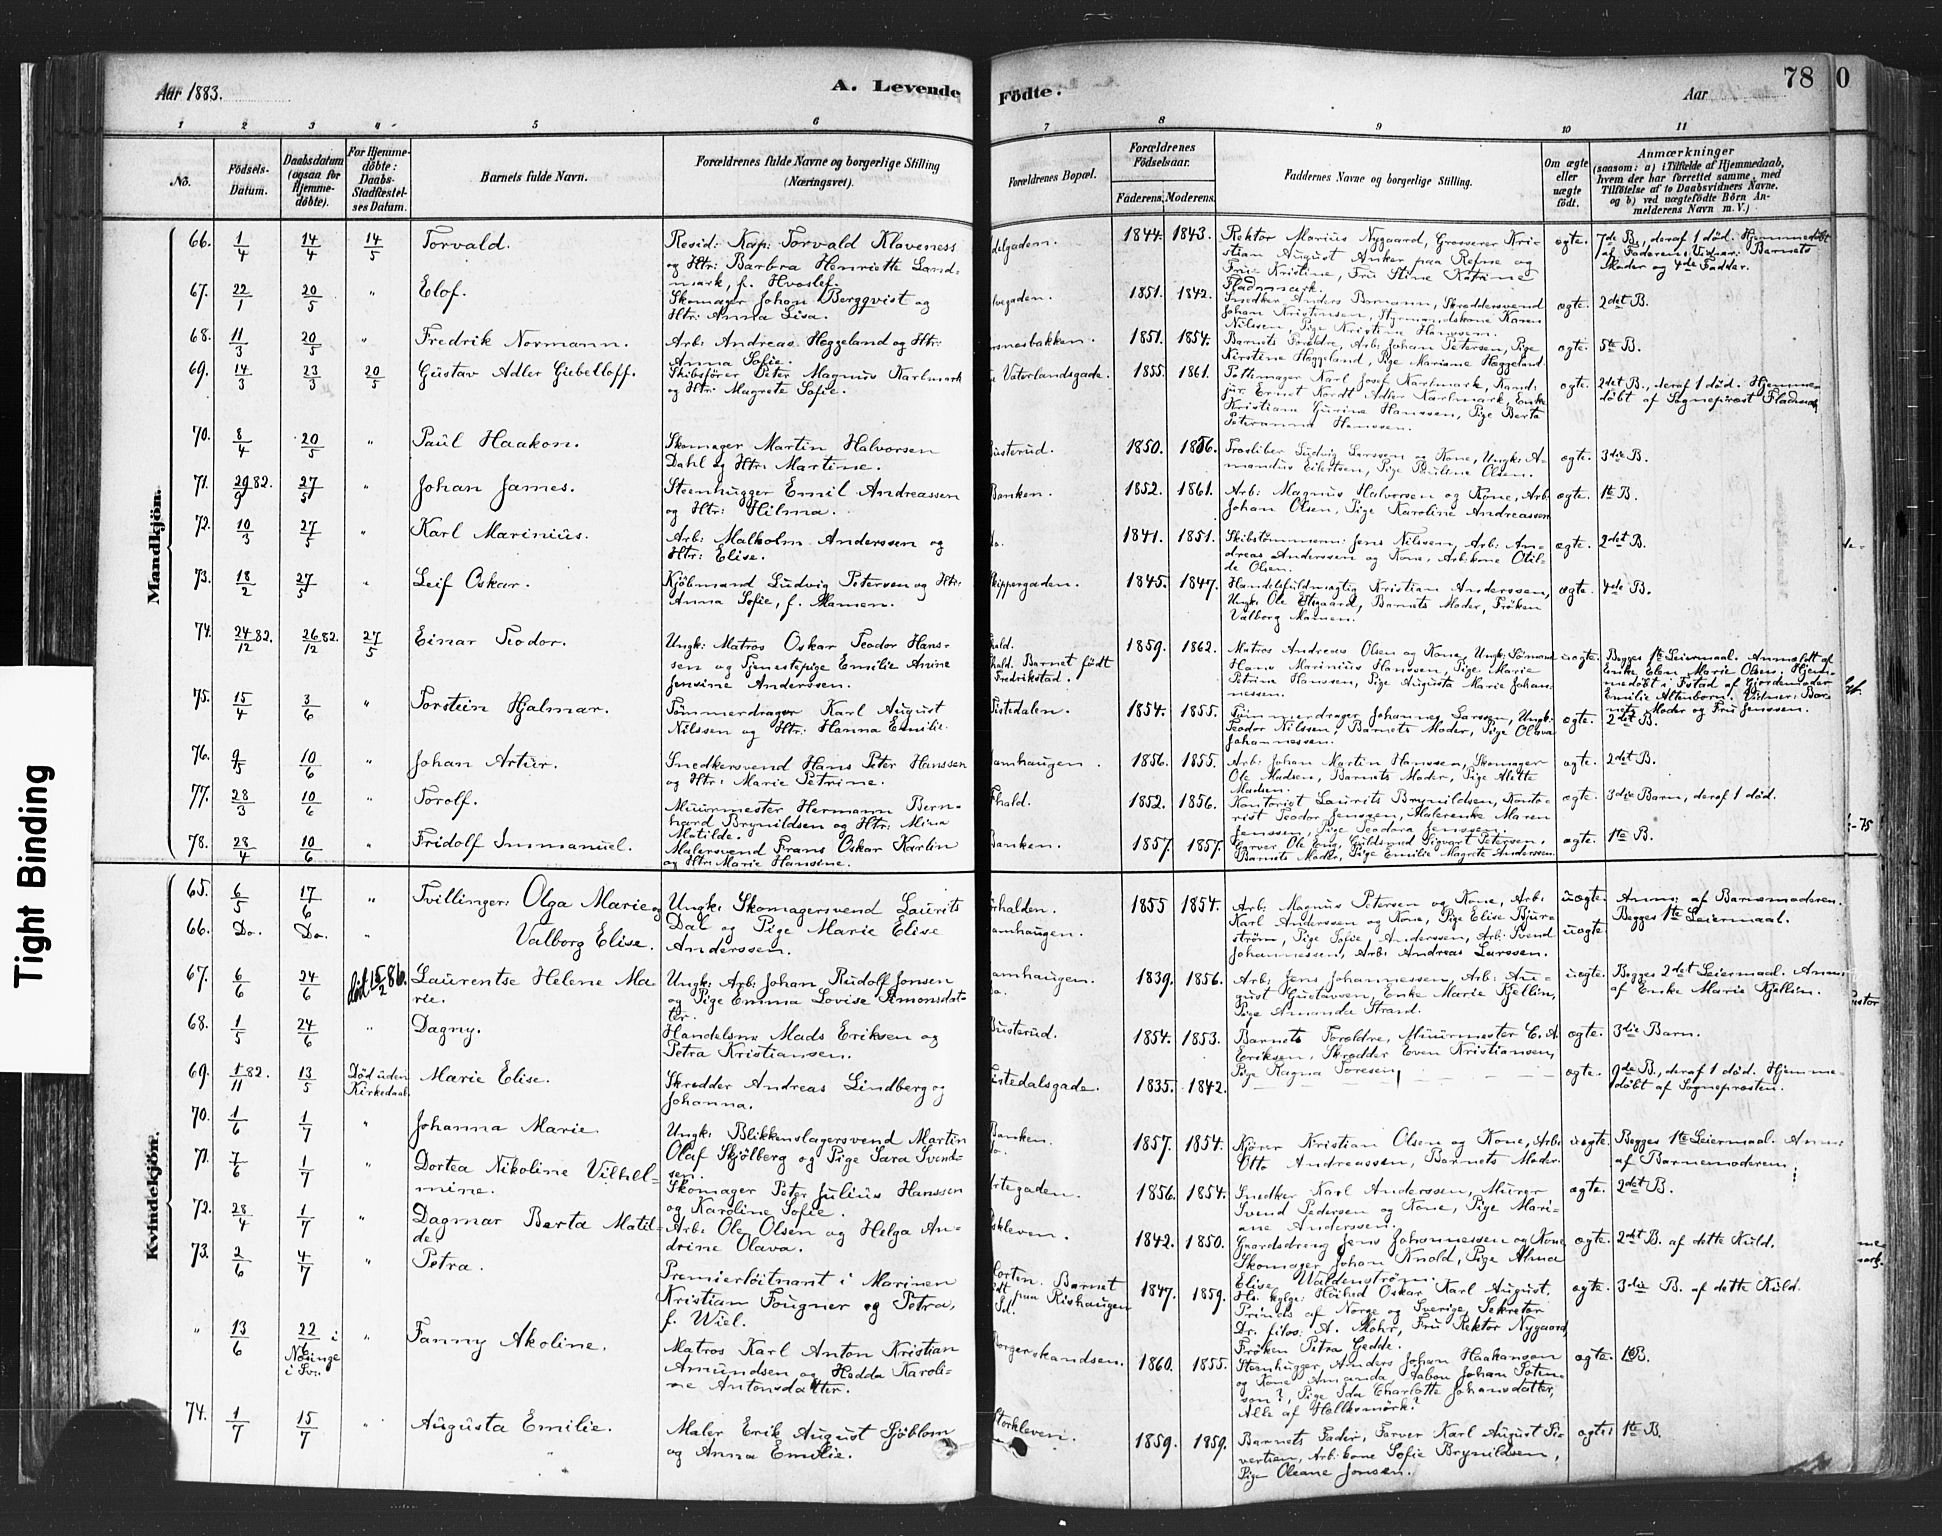 Aar 1883.
A. Levende
Födte.
Aar
78
0
Tight Binding
1 2 3 4 5 6 7 8 9 10 11
No.
Födsels-
Datum.
Daabsdatum
(ogsaa for
Hjemme-
döbte).
For Hjemme-
döbte:
Daabs-
Stadfæstel-
ses Datum.
Barnets fulde Navn.
Forældrenes fulde Navne og borgerlige Stilling
(Næringsvei).
Forældrenes Bopæl.
Forældrenes
Födselsaar.
Faderens. Moderens.
Faddernes Navne og borgerlige Stilling.
Om ægte
eller
uægte
födt.
Anmærkninger
(saasom: a) i Tilfælde af Hjemmedaab,
hvem der har forrettet samme, med
Tilföielse af to Daabsvidners Navne.
og b) ved uægtefödte Börn An-
melderens Navn m. V.)
Mandkjön.
66. 1/4 14/4 14/5 Torvald.
Resid: Kap: Torvald Klaveness
og Htr: Barbra Henriette Land-
mark, f. Hvoslef.
delgaden. 1844. 1843.
Rektor Marius Nygaard, Grosserer Kri-
stian August Anker paa Refne og
Fru Kristine, Fru Stine Katrine
Fladmark.
ægte. 7de B., deraf 1 død. Hjemmedøbt
af Faderen, Vidner: Barnets
Moder og 4de Fadder.
67. 22/1 20/5 " Elof.
Skomager Johan Bergqvist og
Htr: Anna Lisa.
vegaden. 1851. 1842.
Snedker Anders Bermann, Skræddersvend
Johan Kristensen, Styrmandskone Karen
Nilsen, Pige Kristine Hanssen.
ægte. 2det B.
68. 11/3 20/5 " Fredrik Normann.
Arb: Andreas Heggeland og Htr:
Anna Sofie.
rsnesbakken. 1851. 1854.
Barnets Forældre, Arb: Johan Petersen, Pige
Kirstine Heggeland, Pige Mariane Heggeland.
ægte. 5te B.
69. 14/3 23/3 20/5 Gustav Adler Giebelloff.
Skibsfører Peter Magnus Karlmark
og Htr: Magrete Sofie.
Vaterlandsgade. 1855. 1861.
Pottemager Karl Josef Karlmark, Kand:
jur Ernst Nordt Adler Karlmark, Enke
Kristiane Gurine Hanssen, Pige Berta
Peteranna Hanssen.
ægte. 2det B., deraf 1 død. Hjemme-
døbt af Sogneprest Fladmark
70. 8/4 20/5 " Paul Haakon.
Skomager Martin Halvorsen
Dahl og Htr: Martine.
usterud. 1850. 1856.
Træsliber Ludvig Larssen og Kone, Ungk: A-
mandus Eilertsen, Pige Pauline Olsen.
ægte. 3die B.
71. 29/9 82. 27/5 " Johan James.
Steenhugger Emil Andreassen
og Htr: Hilma.
Banken. 1852. 1861.
Arb: Magnus Halvorsen og Kone, Arb:
Johan Olsen, Pige Karoline Andreassen
ægte. 1te B.
72. 10/3 27/5 " Karl Marinius.
Arb: Malkolm Anderssen og
Htr: Elise.
do. 1841. 1851.
Skibstømmerm: Jens Nilssen, Arb: An-
dreas Anderssen og Kone, Arb:kone Otil-
de Olsen.
ægte. 2det B.
73. 18/2 27/5 " Leif Oskar.
Kjøbmand Ludvig Petersen og Htr:
Anna Sofie, f. Mamen.
kippergaden. 1845. 1847.
Handelsfuldmægtig Kristian Anderssen,
Ungk: Ole Elgaard, Barnets Moder, Frøken
Valborg Mamen.
ægte. 4de B.
74. 24/12 82. 26/12 82. 27/5 Einar Teodor.
Ungk: Matros Oskar Teodor Hans-
sen og Tjenestepige Emilie Anine
Jensine Anderssen.
hald.
hald. Barnet født
Fredrikstad.
1859. 1862.
Matros Andreas Olsen og Kone, Ungk: Sømand
Hans Marinius Hanssen, Pige Marie
Petrine Hanssen, Pige Augusta Marie Johan-
nessen.
uægte. Begges 1te Leiermaal. Anmeldt af
Enke Elen Marie Olsen. Hjem-
medøbt i Fstad af Gjordemoder
Emilie Altenborn. Vidner: Bar-
nets Moder og Fru Jenssen.
75. 15/4 3/6 " Torstein Hjalmar.
Tømmerdrager Karl August
Nilssen og Htr: Hanna Emilie.
istedalen. 1854. 1855.
Tømmerdrager Johannes Larssen, Ungk:
Teodor Nilssen, Barnets Moder, Pige Olava
Johannessen.
ægte. 2det B.
76. 9/5 10/6 " Johan Artur.
Snedkersvend Hans Peter Hanssen
og Htr: Marie Petrine.
amhaugen. 1856. 1855.
Arb: Johan Martin Hanssen, Skomager
Ole Madsen, Barnets Moder, Pige Alette
Madsen.
ægte. 2det B.
77. 28/3 10/6 " Torolf.
Muurmester Hermann Bern-
hard Brynildsen og Htr: Mina
Matilde.
hald. 1852. 1856.
Kontorist Laurits Brynildsen, Konto-
rist Teodor Jenssen, Malerenke Maren
Jenssen, Pige Teodora Jenssen.
ægte. 3die Barn, deraf 1 død.
78. 28/4 10/6 " Fridolf Immanuel.
Malersvend Frans Oskar Karlin
og Htr: Marie Hansine.
Banken. 1857. 1857.
Garver Ole Eng, Guldsmed Sigvart Petersen,
Barnets Moder, Pige Emilie Magrete Anderssen.
ægte. 1te B.
Kvindekjön.
65. 6/5 17/6 " Tvillinger: Olga Marie og
66. Do. Do. " Valborg Elise.
Ungk: Skomagersvend Laurits
Dal og Pige Marie Elise
Anderssen.
rhalden.
amhaugen.
1855 1854.
Arb: Magnus Petersen og Kone, Arb:
Karl Anderssen og Kone, Pige Elise Bjure-
strøm, Pige Sofie Anderssen, Arb: Svend
Johannessen, Arb: Andreas Larssen.
uægte.
uægte
Anm: af Barnemoderen.
Begges 1te Leiermaal.
67. 6/6 24/6 død 15/2 86. Laurentse Helene Ma
rie.
Ungk: Arb: Johan Rudolf Jonsen
og Pige Emma Lovise Simonsdat-
ter.
amhaugen.
do.
1839. 1856.
Arb: Jens Johannessen, Arb: Au-
gust Gustavsen, Enke Marie Kjellin,
Pige Amanda Strand.
uægte. Begges 2det Leiermaal. Anm:
af Enke Marie Kjellin.
68. 1/5 24/6 " Dagny.
Handelsm: Mads Eriksen og
Petra Kristiansen.
usterud. 1854. 1853.
Barnets Forældre, Muurmester C. A.
Eriksen, Skrædder Even Kristiansen,
Pige Ragna Toresen
ægte. 3die Barn.
69. 1/11 82. 13/5 Død uden
Kirkedaab. Marie Elise.
Skrædder Andreas Lindberg og
Johanna.
istedalsgade. 1835. 1842.
ægte. 9de B., deraf 1 død. Hjemme-
døbt af Sognepresten.
70. 1/6 1/7 " Johanna Marie.
Ungk: Blikkenslagersvend Martin
Olaf Skjølberg og Pige Sara Svend-
sen.
Banken.
do.
1857. 1854.
Kjører Kristian Olsen og Kone, Arb:
Otto Andreassen, Barnets Moder.
uægte. Begges 1te Leiermaal. Anm:
af Barnemoderen.
71. 7/6 1/7 " Dortea Nikoline Vilhel-
mine.
Skomager Peter Julius Hanssen
og Karoline Sofie.
rtegaden. 1856. 1854.
Snedker Karl Anderssen, Murer
Svend Pedersen og Kone, Pige Mari-
ane Anderssen.
ægte. 2det B.
72. 28/4 1/7 " Dagmar Berta Matil-
de.
Arb: Ole Olsen og Helga An-
drine Olava.
skleven. 1842. 1850.
Gaardsdreng Jens Johannessen og Kone,
Skomager Johan Knold, Pige Alma
Elise Waldenstrøm.
ægte. 2det B. af dette Kuld.
73. 2/6 4/7 " Petra.
Premierløitnant i Marinen
Kristian Fougner og Petra,
f. Wiel.
orten. Barnet
dt paa Rishaugen
Sd.
1847. 1859.
Hs. kglge: Høihed Oskar Karl August,
Prinds af Norge og Sverige, Sekretær
Dr. filos: A. Mohr, Fru Rektor Nygaard,
Frøken Petra Gedde.
ægte. 3die B. af dette Kuld.
" 13/6 22/6 i
Næsinge
i Sv: " Fanny Akoline.
Matros Karl Anton Kristian
Amundsen og Hedda Karoli-
ne Antonsdatter.
orgerskandsen. 1860. 1855.
Stenhugger Anders Johan Haakanson
og Kone Amanda, Fabor Johan Peten-
son?, Pige Ida Charlotte Johansdatter,
Alle af Hellksmörk?
ægte. 1te B.
74. 1/7 15/7 " Augusta Emilie.
Maler Erik August Sjöblom
og Anna Emilie.
Storkleven. 1859. 1859.
Barnets Fader, Farver Karl August Si-
vertsen, Arb:kone Sofie Brynildsen,
Pige Oleane Jonsen.
ægte: 1te B.